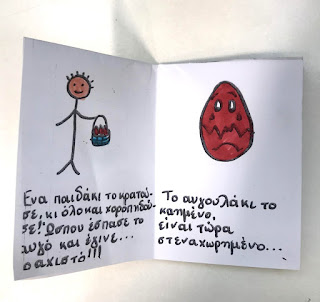 Ένα παιδάκι το κρατού-
σε, κι όλο και χοροπηδού-
σε! Ώσπου έσπασε το
αυγό και έγινε...
ραχιστό!!!
Το αυγουλάκι το
καημένο,
είναι τώρα
στεναχωρημένο...